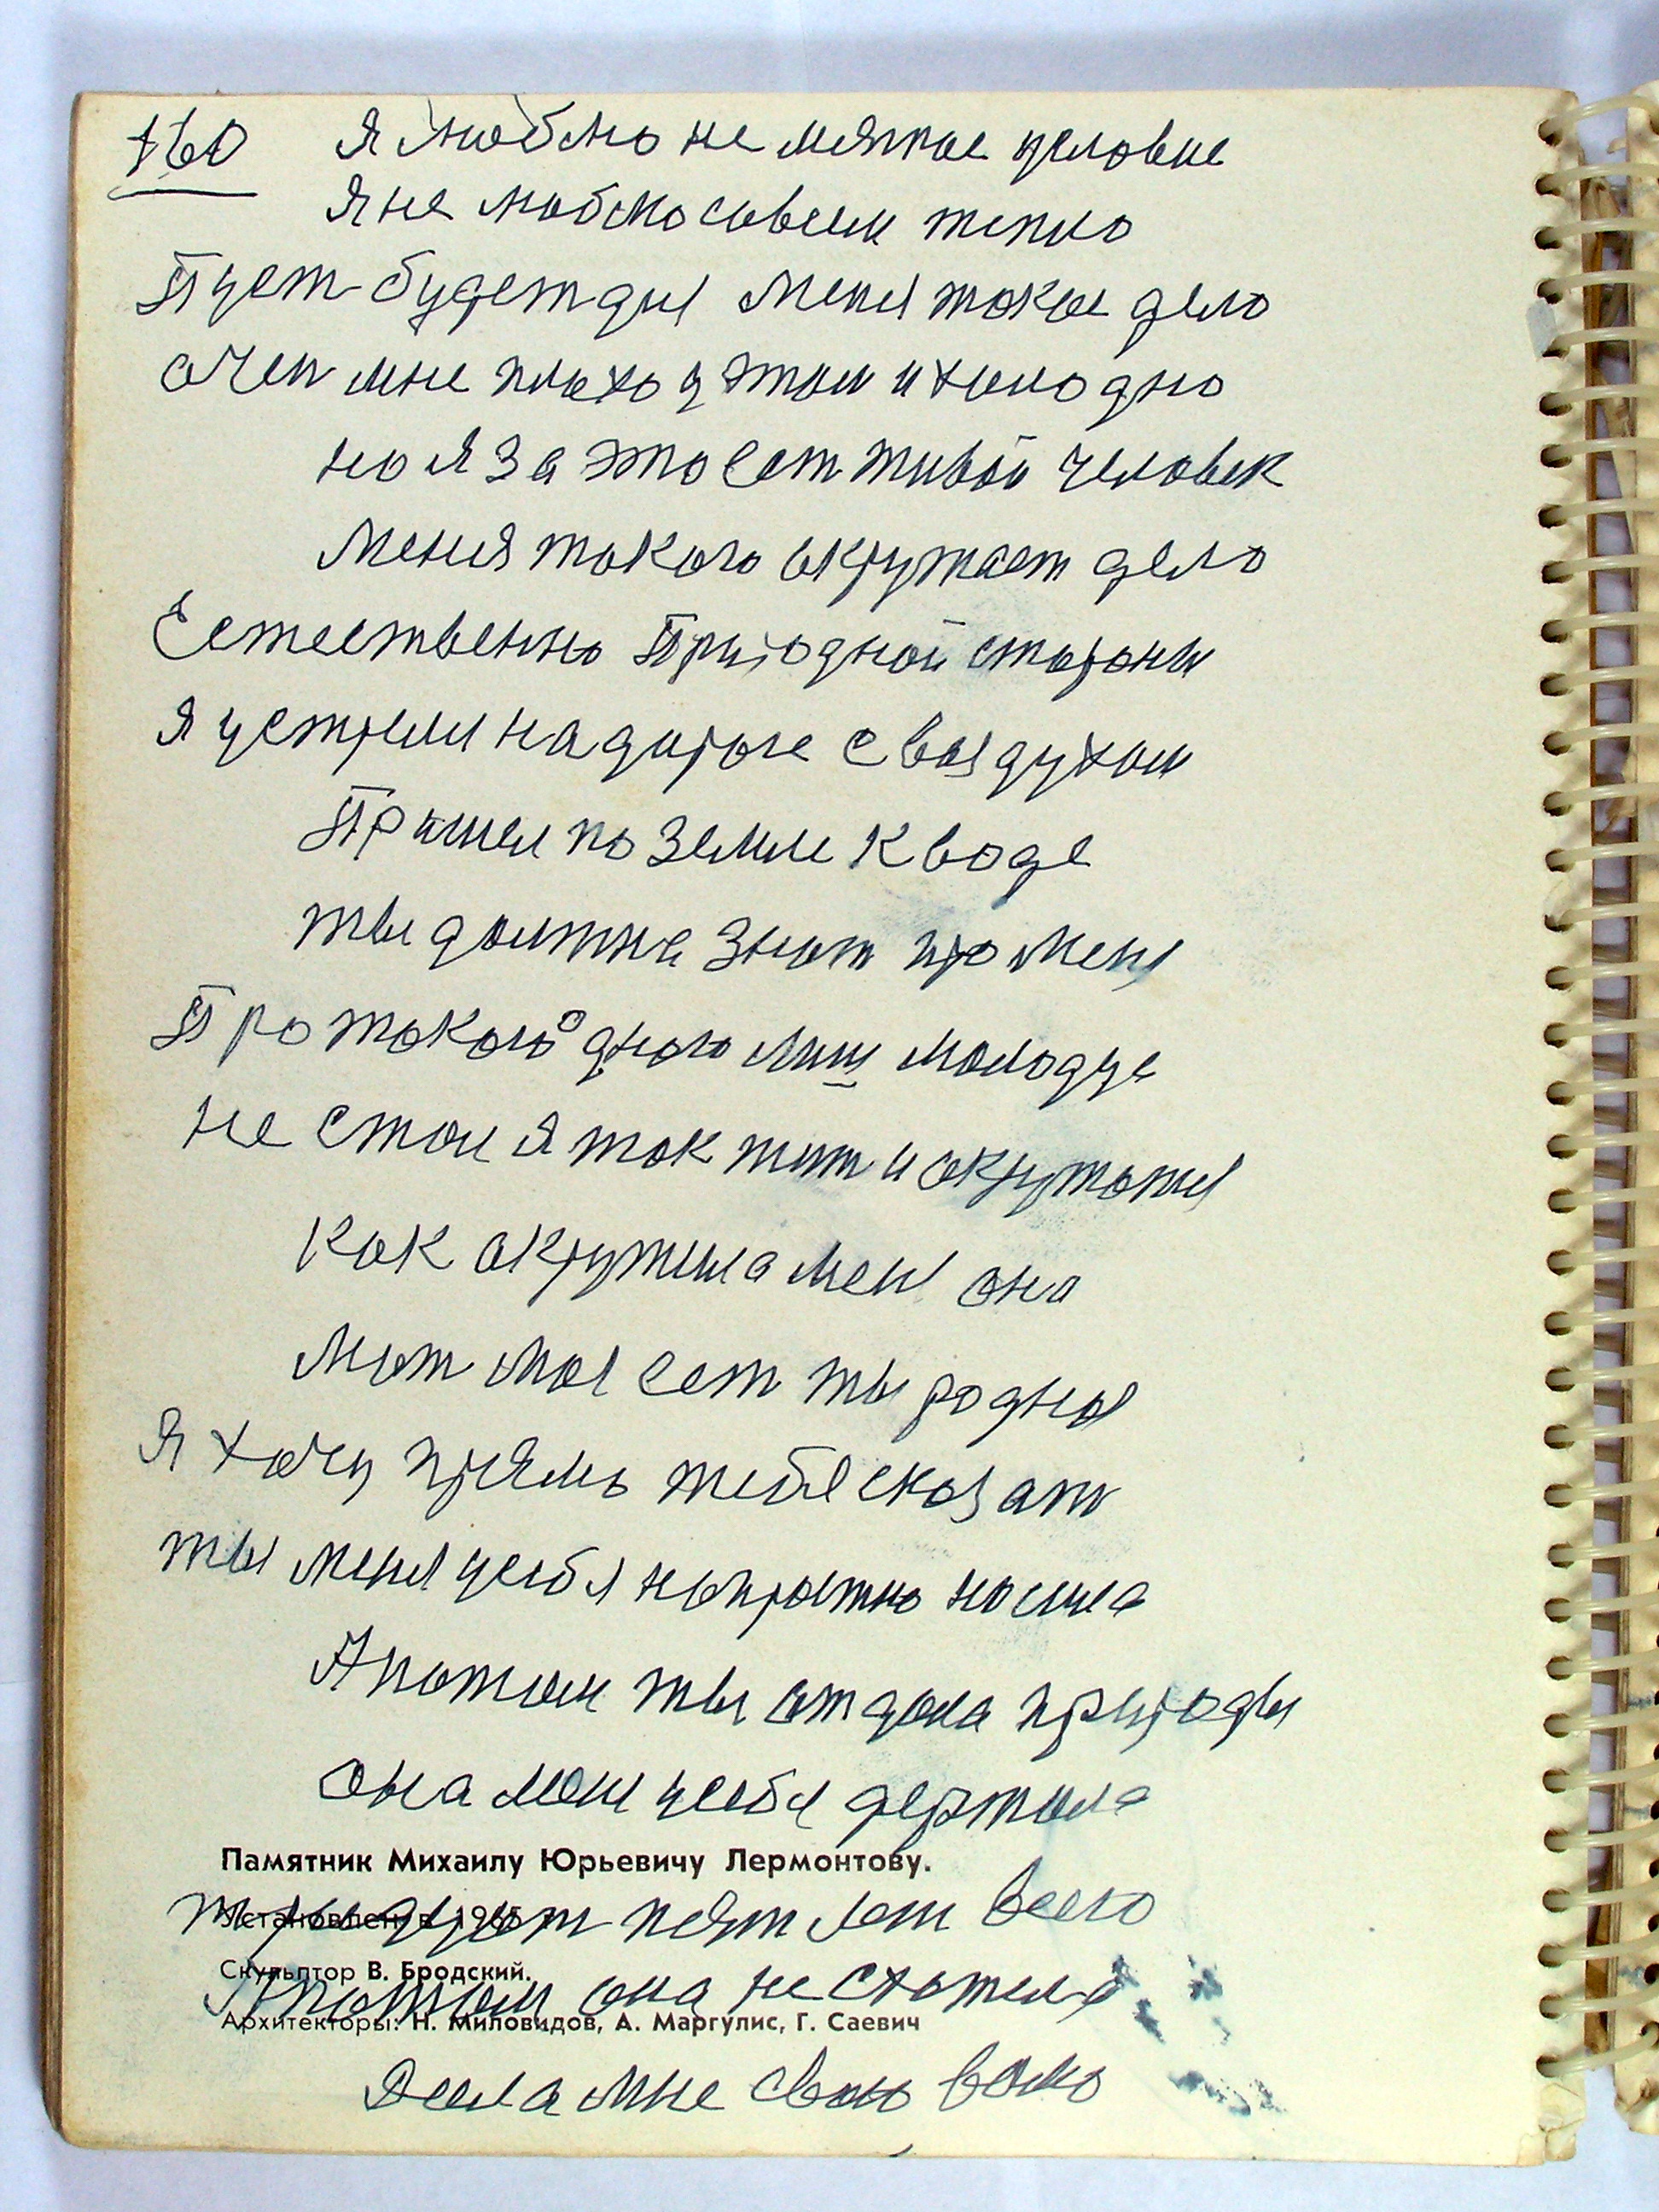 160
Я люблю не мягкое условие
Я не люблю совсем тепло
Пуст будет для меня такое дело
очен мне плохо у этом и холодно
но я за это ест живой человек
Меня такого окружает дело
Естественно Природной стороны
Я устрели на дороге с воздухом
Пришел по земле к воде
ты должна знат про меня
Про такого одного лиш молодца
не стал я так жит и окружатся
Как окружила меня она
Мат моя ест ты родная
Я хочу прямо тебе сказат
ты меня у себя напрасно носила
А потом ты отдала природы
она меня у себя держала
тридцат пят лет всего
Памятник Михаилу Юрьевичу Лермонтову.
Установлен в 1965
А потом она не схотела
Скульптор В. Бродский.
Архитекторы: Н. Миловидов, А. Маргулис, Г. Саевич
Дала мне свою волю